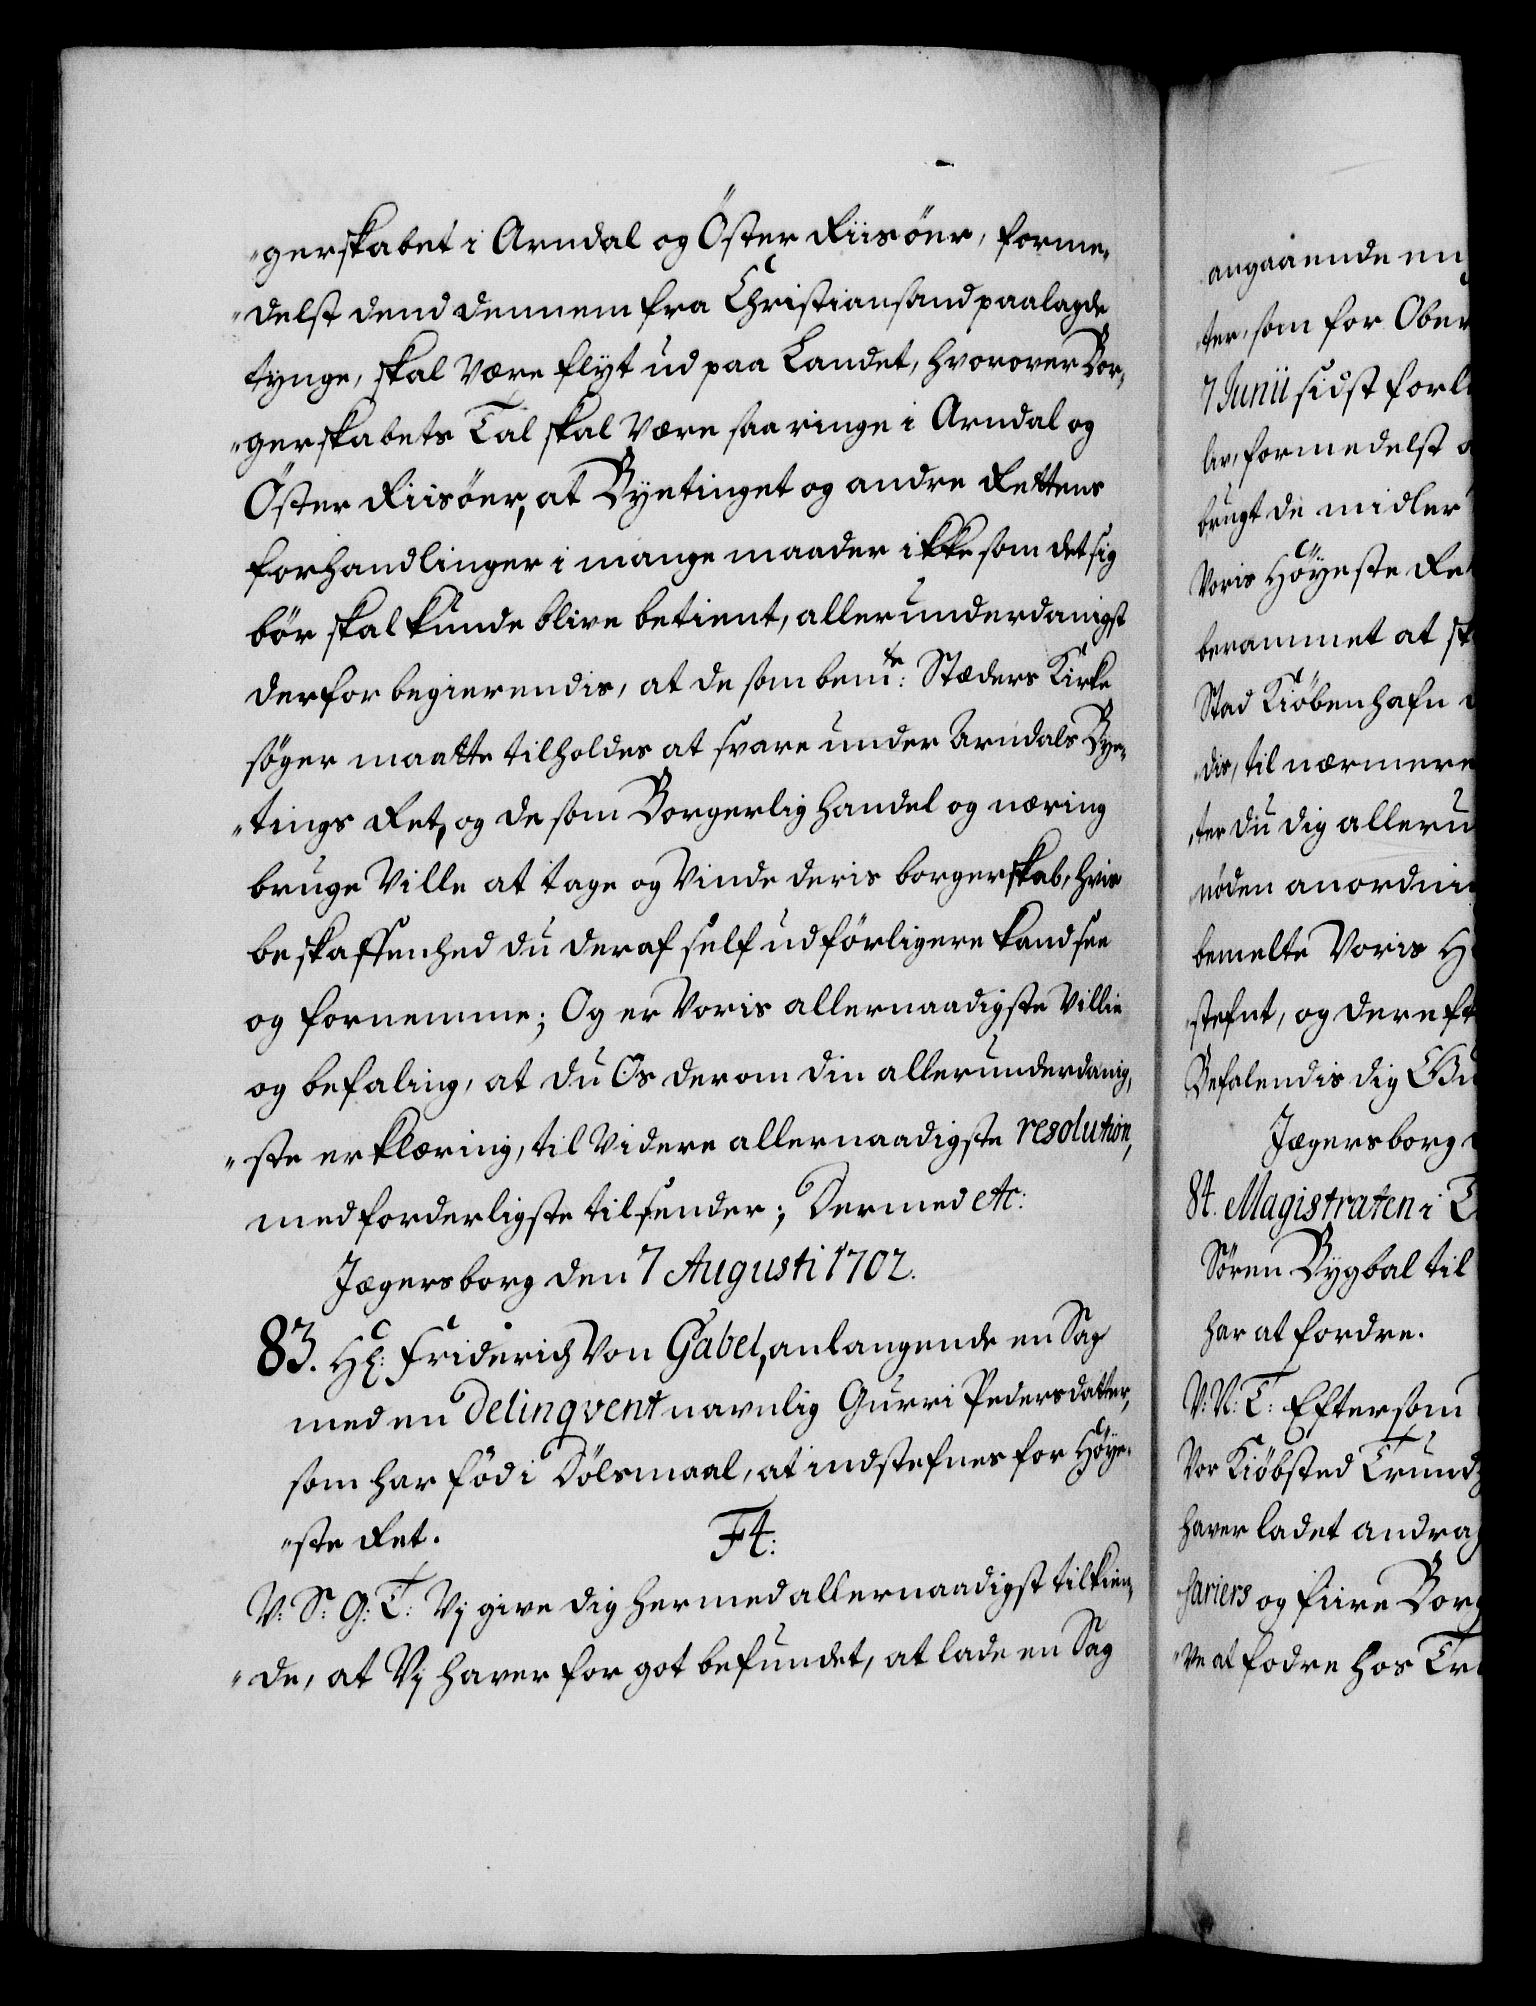 "gerskabet i Arndal og Öster Riisöer, forme,
"delst dend dennem fra Christiansand paalagde
tynge, skal være flyt ud paa Landet, hvorover Bor,
"gerskabets Tal skal være saa ringe i Arndal og
Öster Riisöer, at Byetinget og andre Rettens
forhandlinger i mange maader ikke som det sig
bör skal kunde blive betient, allerunderdanigst
derfor begierendis, at de som bemte: Stæders Kirke
söger maatte tilholdes at svare under Arndals Bye,
"tings Ret, og de som Borgerlig handel og næring
bruge Ville at tage og Vinde deris borgerskab, hvis
beskaffenhed du deraf self udförligere kand see
og fornemme; Og er Voris allernaadigste Villie
og befaling, at du Os derom din allerunderdanig,
"ste erklæring, til Videre allernaadigste resolution,
med forderligste tilsender; Dermed etc:
Jægersborg den 7 Augusti 1702.
83. Hr: Friderich Von Gabel, anlangende en Sag
med en Delinqvent navnlig Gurri Pedersdatter,
som har föd i Dölsmaal, at indstefnes for Höye,
"ste Ret.
F4:
V: S: G: T: Vj give dig hermed allernaadigst tilkien,
"de, at Vj haver for got befundet, at lade en Sag
angaaende en
ter, som for Ober
7 Junii sidst forl
liv, formedelst
brugt de midler
Voris Höyeste Ret
berammet at sk
Stad Kiöbenhafn
"dis, til nærmere
"ter du dig alleru
"nöden anordni
bemelte Voris H
"stefnt, og dereft
Befalendis dig Gu
Jægersborg
84. Magistraten i T
Sören Bygbal til
har at fordre.
V: N: T: Eftersom
Vor Kiöbsted Trund
haver ladet andrag
hariers og fiire Borg
"ve at fodre hos Tr